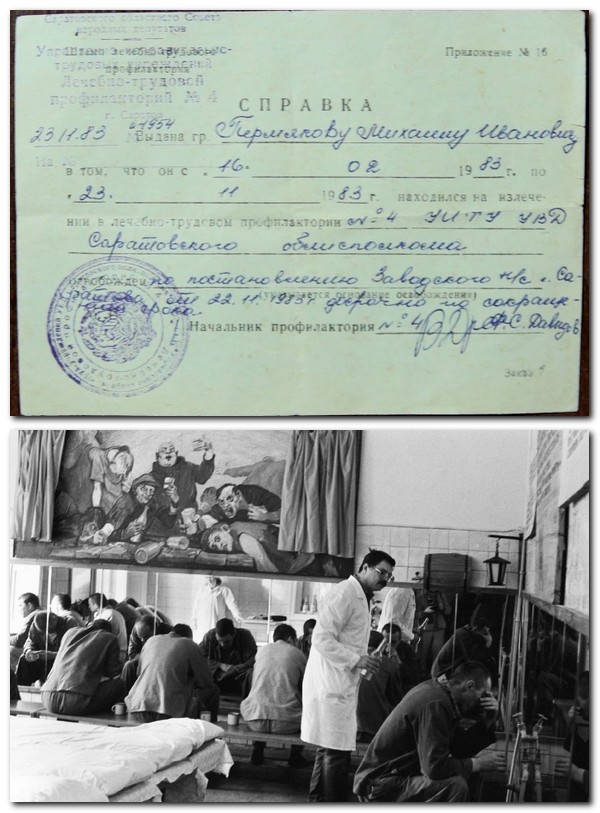 Саратовского областного Совета
народных депутатов
Управление исправительно-
трудовых учреждений
Штамп лечебно-трудового
профилактория
Лечебно-трудовой
профилакторий № 4
г. Саратов
Приложение № 16
СПРАВКА
23.11.83 № 67954 Выдана гр. Пермякову Михаилу Ивановичу
в том, что он с « 16. 02 1983 г. по
« 23. 11 1983 г. находился на излече-
нии в лечебно-трудовом профилактории №4 УИТУ УВД
Саратовского облисполкома
освобожден по постановлению Заводского н/с г. Са-
ратова от 22.11.1983г досрочно по сокраще-
(указывается основание освобождения)
нию срока
Начальник профилактория №4 Ф.С. Давыдов
Заказ